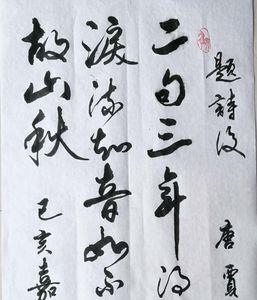 題詩後 唐賈
二句三年得
淚流知音如不
故山秋
己亥嘉